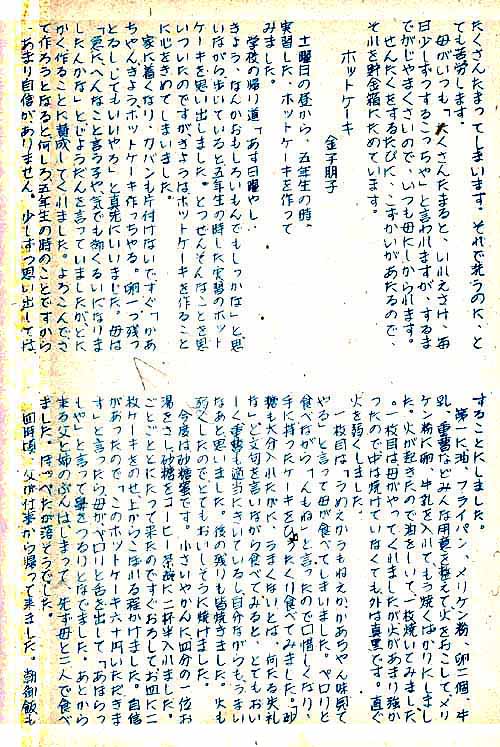 たくさんたまってしまいます。それで洗うのに、と
ても苦労します。
母がいつも「たくさんたまると、いけんけえ、毎
日少しずつするこっちゃ」と言われますが、するま
でがじゃまくさいので、いつも母にしかられます。
せんたくをするたびに、こずかいがあたるので、
それを貯金箱にためています。
ホットケーキ
金子朋子
土曜日の昼から、五年生の時、
実習した、ホットケーキを作って
みました。
学校の帰り道「あす日曜やし、
きょう、なんかおもしろいもんでもしっかな」と思
いながら歩いていると五年生の時した実習のホット
ケーキを思い出しました。とつぜんそんなことを思
いついたのですがきょうはホットケーキを作ること
に心をきめてしまいました。
家に着くなり、カバンも片付けないですぐ「かあ
ちゃんきょう、ホットケーキ作っちゃる。卵一つ残っ
とるし、してもいいやろ」と真先にいいました。母は
「急に、へんなこと言う子や、気でも弱くるいになりま
したんかな」とじょうだんを言っていましたがとに
かく作ることに賛成してくれました。よろこんでさ
て作ろうとなると何しろ五年生の時のことですから
あまり自信がありません。少しずつ思い出しては、
することにしました。
第一に油、フライパン、メリケン粉、卵一個、牛
乳、重曹などみんな用意を整えて火をおこしてメリ
ケン粉に卵、牛乳を入れてもう焼くばかりにしまし
た。火が起きたので油をしいて、一枚焼いてみました
。一枚目は母がやってくれましたが火があまり強か
ったので中は焼けていなくても外は真黒です。直ぐ
火を弱くしました。
一枚目は「うめえかうもねえか、かあちゃん味見て
やる」と言って母が食べてしまいました。ペロリと
食べながら「んもねぇ」と言ったので口惜しくなり、
手に持ったケーキをひったくり食べてみました。「砂
糖も大分入れたがに、うまくないとは、何たる失礼
な」と文句を言いながら食べてみると、とてもおい
しく重曹も適当にきいているし自分ながらも、うまい
なあと思いました。後の残りも皆焼きました。火も
弱くしたのでとてもおいしそうに焼けました。
今度は砂糖蜜です。小さいやかんに四分の一位お
湯をさし砂糖をコーヒー茶碗に二杯半入れました。
ことごとにたって来たのですぐおろしてお皿に二
枚ケーキをのせ上からこぼれる程かけました。自信
があったので「このホットケーキ六十円いただきま
す」と言ったら母がペロリと舌を出して「あほらっ
しゃ」と言って鼻をつるりとなでました。あとから
来る父と姉のぶんはしまって、先ず母と二人で食べ
ました。ほっぺたが落そうでした。
四時頃、父が仕事から帰って来ました。朝御飯も